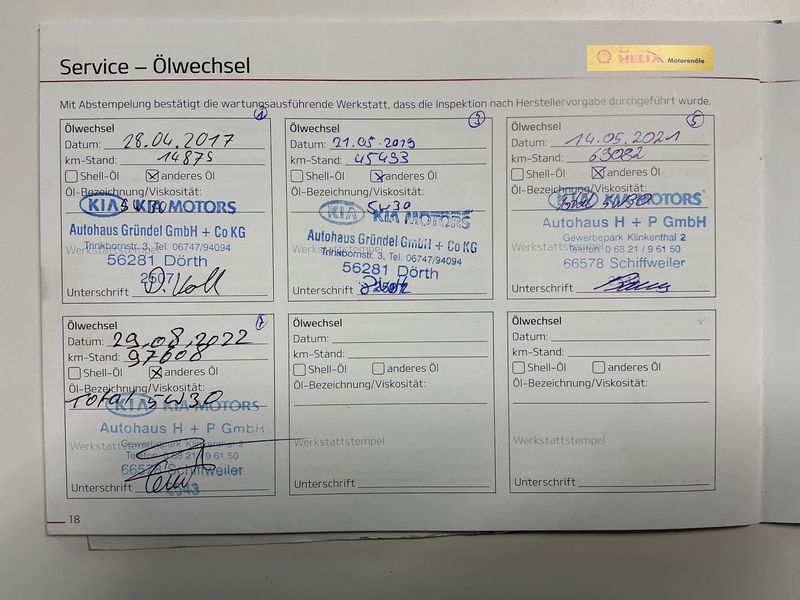 Service – Ölwechsel
SHELL HELIX Motorenöle
Mit Abstempelung bestätigt die wartungsausführende Werkstatt, dass die Inspektion nach Herstellervorgabe durchgeführt wurde.
1
Ölwechsel
Datum: 28.04.2017
km-Stand: 14875
Shell-Öl anderes Öl
Öl-Bezeichnung/Viskosität:
5W30
KIA KIA MOTORS
Autohaus Gründel GmbH + Co KG
Trinkbornstr. 3, Tel. 06747/94094
Werkstattstempel
56281 Dörth
2507
Unterschrift
3
Ölwechsel
Datum: 21.05.2019
km-Stand: 45493
Shell-Öl anderes Öl
Öl-Bezeichnung/Viskosität:
5W30
KIA KIA MOTORS
Autohaus Gründel GmbH + Co KG
Trinkbornstr. 3, Tel. 06747/94094
Werkstattstempel
56281 Dörth
Unterschrift
5
Ölwechsel
Datum: 14.05.2021
km-Stand: 69082
Shell-Öl anderes Öl
Öl-Bezeichnung/Viskosität:
KIA KIA MOTORS
Autohaus H + P GmbH
Gewerbepark Klinkenthal 2
Werkstattstempel
Telefon 0 68 21 / 9 61 50
66578 Schiffweiler
Unterschrift
7
Ölwechsel
Datum: 29.08.2022
km-Stand: 97608
Shell-Öl anderes Öl
Öl-Bezeichnung/Viskosität:
Total 5W30
KIA KIA MOTORS
Autohaus H + P GmbH
Gewerbepark Klinkenthal 2
Werkstattstempel
Telefon 0 68 21 / 9 61 50
66578 Schiffweiler
Unterschrift
Ölwechsel
Datum:
km-Stand:
Shell-Öl anderes Öl
Öl-Bezeichnung/Viskosität:
Werkstattstempel
Unterschrift
Ölwechsel
Datum:
km-Stand:
Shell-Öl anderes Öl
Öl-Bezeichnung/Viskosität:
Werkstattstempel
Unterschrift
18